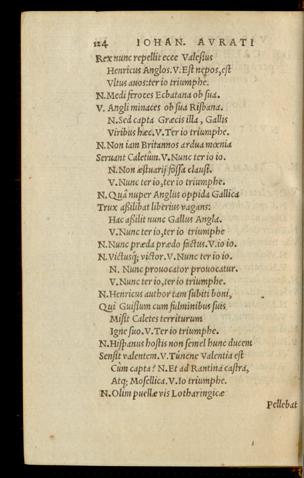 124 IOHAN. AVRATI
Rex nunc repellit ecce Valesius
Henricus Anglos. V. Est nepos, est
Vltus auos: ter io triumphe.
N. Medi feroces Ecbatana ob sua.
V. Angli minaces ob sua Risbana.
N. Sed capta Græcis illa, Gallis
Viribus hæc. V. Ter io triumphe.
N. Non iam Britannos ardua mœnia
Seruant Caletûm. V. Nunc ter io io.
N. Non æstuarij fossa claust.
V. Nunc ter io, ter io triumphe.
N. Quâ nuper Anglus oppida Gallica
Trux assilibat liberius vagans:
Hac assilit nunc Gallus Angla.
V. Nunc ter io, ter io triumphe
N. Nunc præda prædo factus. V. io io.
N. Victusq; victor. V. Nunc ter io io.
N. Nunc prouocator prouocatur.
V. Nunc ter io, ter io triumphe.
N. Henricus author tam subiti boni,
Qui Guisium cum fulminibus suis
Misit Caletes territurum
Igne suo. V. Ter io triumphe.
N. Hispanus hostis non semel hunc ducem
Sensit valentem. V. Túncne Valentia est
Cùm capta? N. Et ad Rantina castra,
Atq; Mosellica. V. Io triumphe.
N. Olim puellæ vis Lotharingicæ
Pellebat